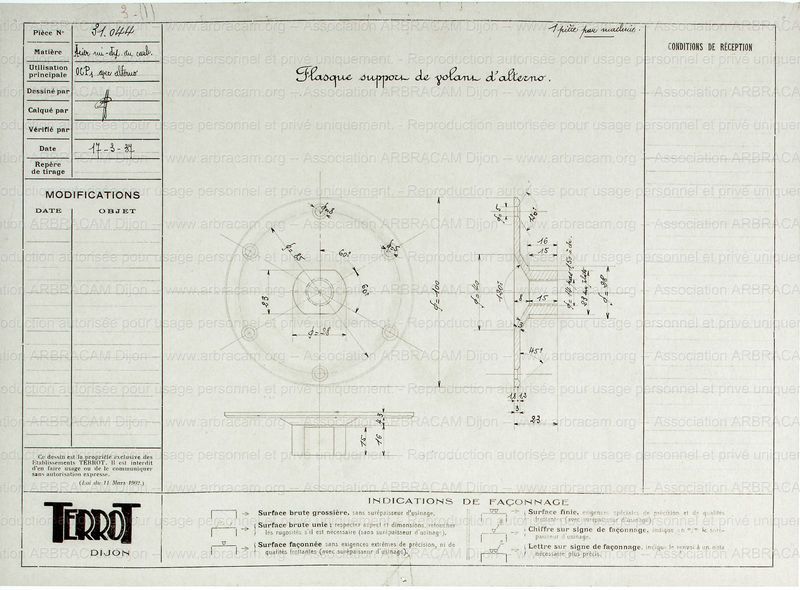 3-111
Pièce N° 31.044
Matière Acier mi-dur au carb.
Utilisation
principale OCP1 avec alterno
Dessiné par
Calqué par
Vérifié par
Date 17-3-37
Repère
de tirage
MODIFICATIONS
DATE OBJET
1 pièce par machine.
CONDITIONS DE RÉCEPTION
Flasque support de volant d'alterno.
φ=8
φ=85
60°
φ=5
60°
23
φ=28
φ=100
φ=5
120°
16
15
φ=60
120°
8
15
φ=38
45°
3
23
15
16
Ce dessin est la propriété exclusive des
Etablissements TERROT. Il est interdit
d'en faire usage ou de le communiquer
sans autorisation expresse.
(Loi du 11 Mars 1902.)
TERROT
DIJON
INDICATIONS DE FAÇONNAGE
Surface brute grossière, sans surépaisseur d'usinage.
Surface brute unie ; respecter aspect et dimensions, retoucher
les rugosités s'il est nécessaire (sans surépaisseur d'usinage).
Surface façonnée sans exigences extrêmes de précision, ni de
qualités frottantes (avec surépaisseur d'usinage).
Surface finie, exigences spéciales de précision et de qualités
frottantes (avec surépaisseur d'usinage).
Chiffre sur signe de façonnage, indique en m/m la surépaisseur d'usinage.
Lettre sur signe de façonnage, indique le renvoi à un nota
nécessaire plus précis.
www.arbracam.org -- Association ARBRACAM Dijon -- www.arbracam.org -- Association ARBRACAM Dijon
Reproduction autorisée pour usage personnel et privé uniquement.